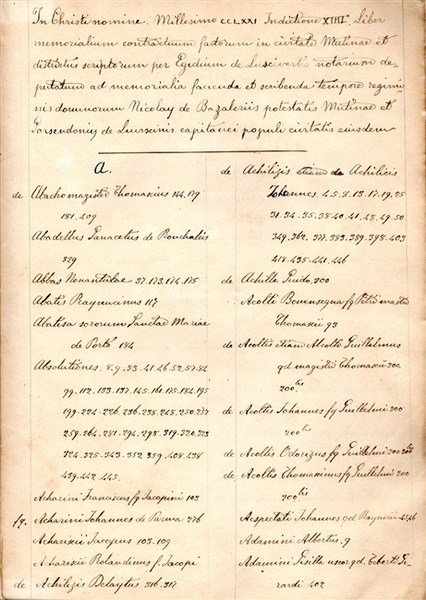 In Christi nomine. Millesimo CCLXXI Indictione XIIII Liber
memorialium contractuum factorum in civitate Mutinae et
districtus scriptorum per Egidium de notarium de-
putatum ad memorialia facienda et scribenda tempore regimi-
nis dominorum Nicolay de Bazaleriis potestatis Mutinae et
de capitanei populi civitatis eiusdem
a.
de Abacho magister Thomaxius 144, 179
181, 409
Abadellus Panacetus de Ronchaliis
329
Abbas Nonantulae 37, 173, 174, 175
Abatis Raynucinus 117
Abatisa sororum Sanctae Mariae
de Porto 184
Absolutiones. 8. 9. 33. 41. 46. 52. 57. 84
99. 112. 133. 137. 145. 161. 175. 184. 195
199. 224. 226. 236. 238. 248. 250. 257
259. 264. 281. 294. 298. 319. 320. 323
324. 328. 343. 352. 389. 408. 438
439. 442. 445.
Acharini Franciscus fq Jacopini 103
fq. Acharini Johannes de Parma 276
Acharixii Jacopus 103, 109
Acharixii Rolandinus f. Jacopi
de Achilizis Delaytus 316, 317
de Achilizis etiam de Achiliciis
Johannes. 4. 5. 8. 13. 17. 19. 25
31. 34. 35. 38. 40. 41. 48. 49. 50
349. 362. 377. 383. 389. 398. 403
418. 435. 441. 446
de Achille Guido. 200
Acolti Bonensegna fq Petri
Thomaxii 93
de Acoltis etiam Alcolto Guillelmus
qd magistri Thomaxii 200.
200bis
de Acoltis Johannes fq Guillelmi 200
200bis
de Acoltis Odorizus fq Guillelmi 200
de Acoltis Thomaxinus fq Guillelmi 200
200bis
Acspettati Johannes qd
Adamini Albertus, 9
Adamini Gisilla uxor qd Ceberti Gi-
rardi 402